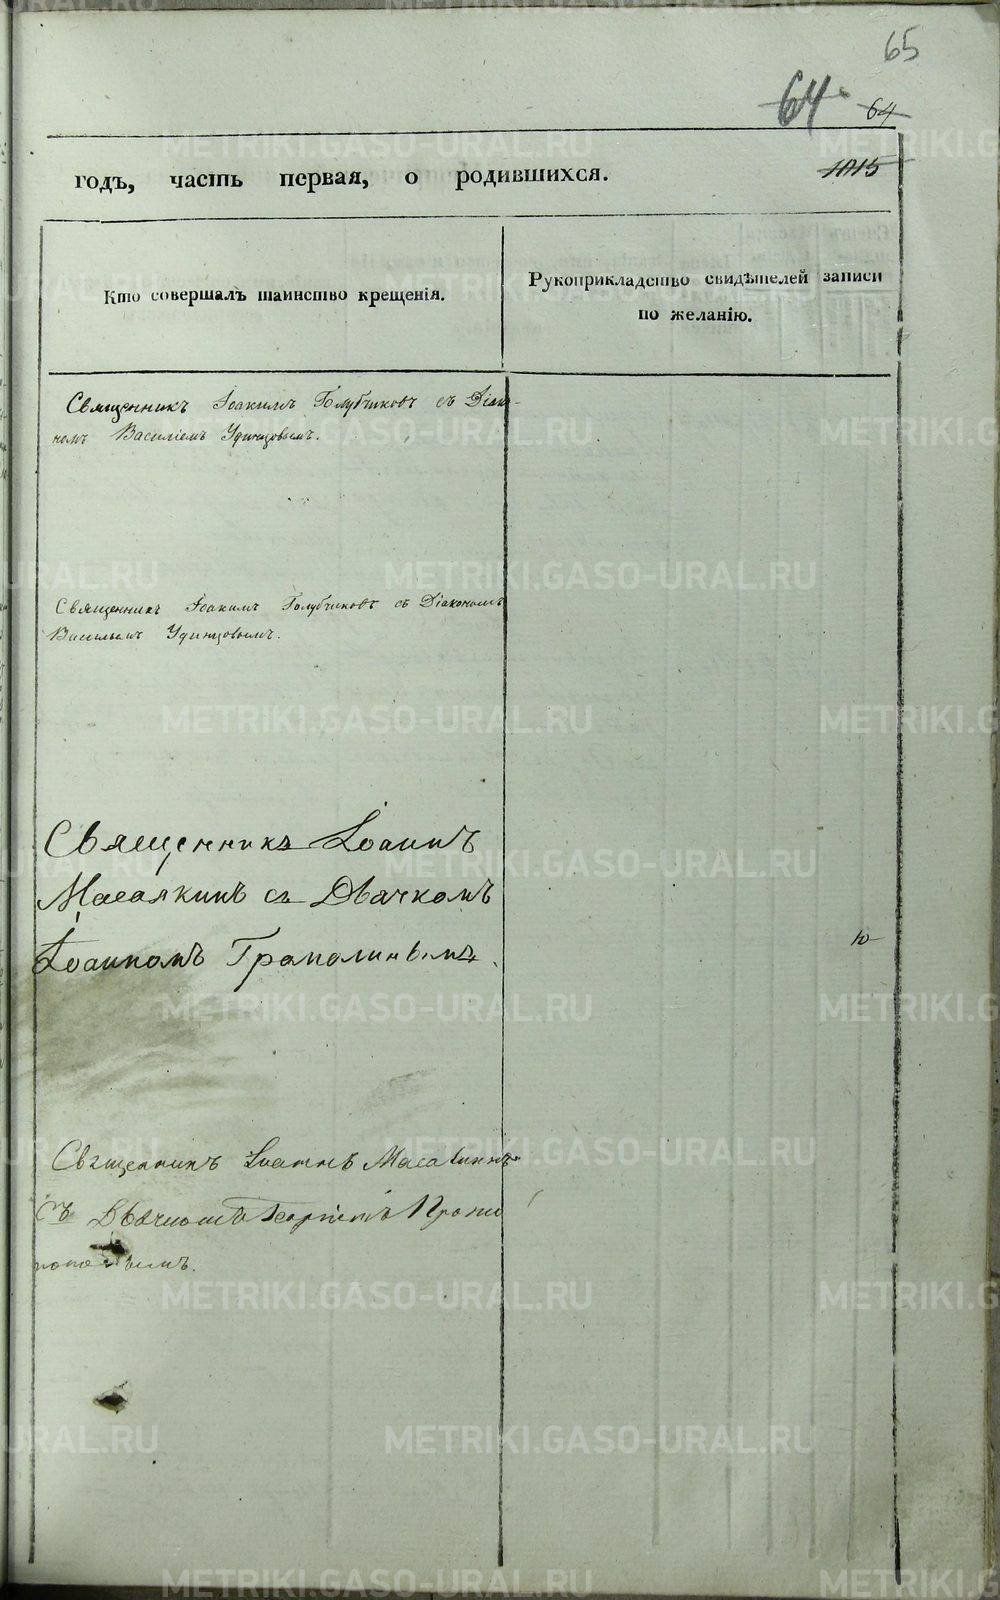 65
64
64
1015
годъ, часть первая, о родившихся.
Кто совершалъ таинство крещенія.
Рукоприкладство свидѣтелей записи
по желанію.
Священникъ Іоакимъ Голубчиковъ съ Діако-
номъ Василіемъ Удинцовымъ.
Священникъ Іоакимъ Голубчиковъ съ Діакономъ
Васильемъ Удинцовымъ.
Священникъ Іоаннъ
съ Дьячкомъ
Іоанномъ
Священникъ Іоаннъ
Съ Дьячкомъ Георгіемъ
METRIKI.GASO-URAL.RU